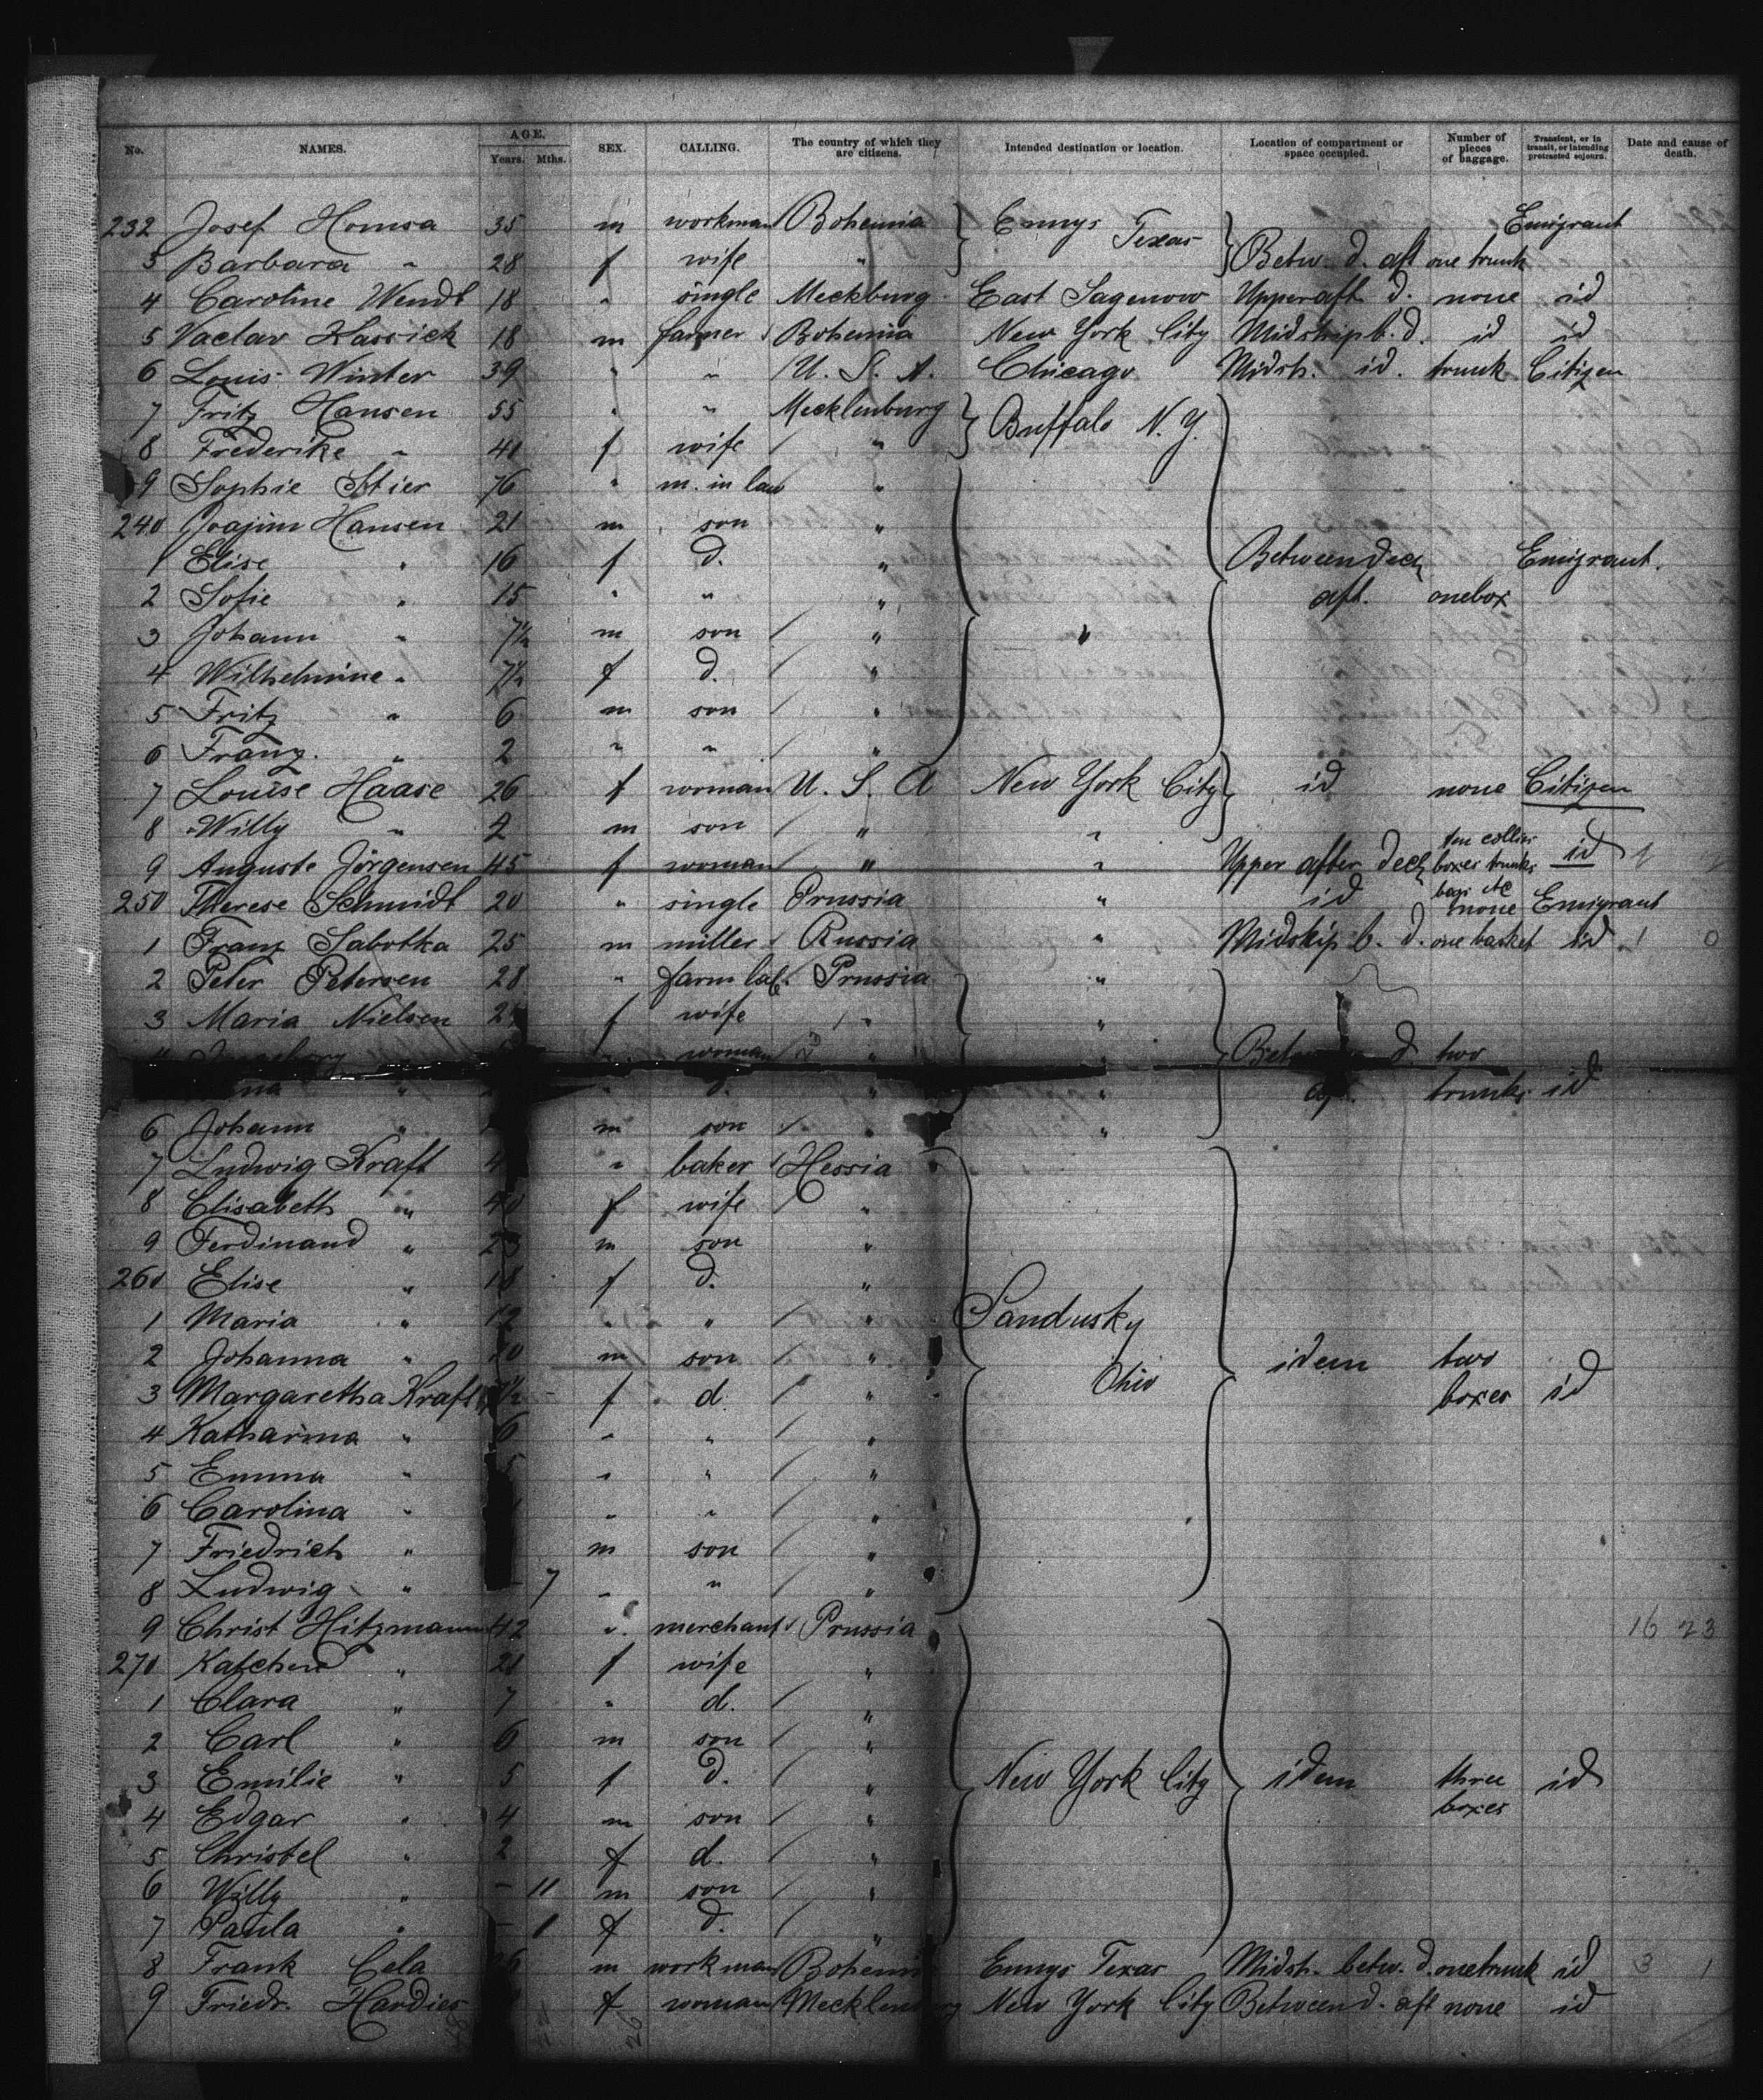 No. NAMES. AGE. Years. Mths. SEX. CALLING. The country of which they are citizens. Intended destination or location. Location of compartment or space occupied. Number of pieces of baggage. Transient, or in transit, or intending protracted sojourn. Date and cause of death.
232 Josef Homsa 35 m workman Bohemia Ennys Texas Emigrant
3 Barbara " 28 f wife " Betw. d. aft one trunk
4 Caroline Wendt 18 " single Meckburg East Sagenow Upper aft d. none id
5 Vaclav Kassick 18 m farmer Bohemia New York City Midship b. d. id id
6 Louis Winter 39 " " U. S. A. Chicago Midsh. id. trunk Citizen
7 Fritz Hansen 55 " " Mecklenburg Buffalo N. Y.
8 Frederike " 41 f wife "
9 Sophie Stier 76 " m. in law "
240 Joajim Hansen 21 m son "
1 Elise " 16 f d. " Between deck Emigrant.
2 Sofie " 15 " " " aft. one box
3 Johann " 7½ m son " "
4 Wilhelmine " 7½ f d. "
5 Fritz " 6 m son "
6 Franz. " 2 " " "
7 Louise Haase 26 f woman U. S. A New York City id none Citizen
8 Willy " 2 m son " "
9 Auguste Jörgensen 45 f woman " " Upper after deck ten collies boxes trunks bags etc id
250 Therese Schmidt 20 " single Prussia " id none Emigrant
1 Franz Sabotka 25 m miller Russia " Midship b. d. one basket id 1 0
2 Peter Petersen 28 " farm lab. Prussia "
3 Maria Nielsen f wife " "
woman " " d two
" " d. " " trunks id
6 Johann " m son " "
7 Ludwig Kraft " baker Hessia
8 Elisabeth " 40 f wife "
9 Ferdinand " 23 m son "
260 Elise " 18 f d. "
1 Maria " 12 " " " Sandusky
2 Johanna " m son " idem two
3 Margaretha Kraft f d. " Ohio boxes id
4 Katharina " 6 " " "
5 Emma " " " "
6 Carolina " " " "
7 Friedrich " m son "
8 Ludwig " 7 " " "
9 Christ Hitzmann 42 ". merchant Prussia 16 23
270 Katchen " 28 f wife "
1 Clara " 7 " d. "
2 Carl " 6 m son "
3 Emilie " 5 f d. " New York City idem three id
4 Edgar " 4 m son " boxes
5 Christel " 2 f d. "
6 Willy " - 11 m son "
7 Paula " - 1 f d. "
8 Frank Cela 26 m workman Bohemia Ennys Texas Midsh. betw. d. one trunk id 3 1
9 Friedr. Hardies f woman Mecklenburg New York City Between d. aft none id